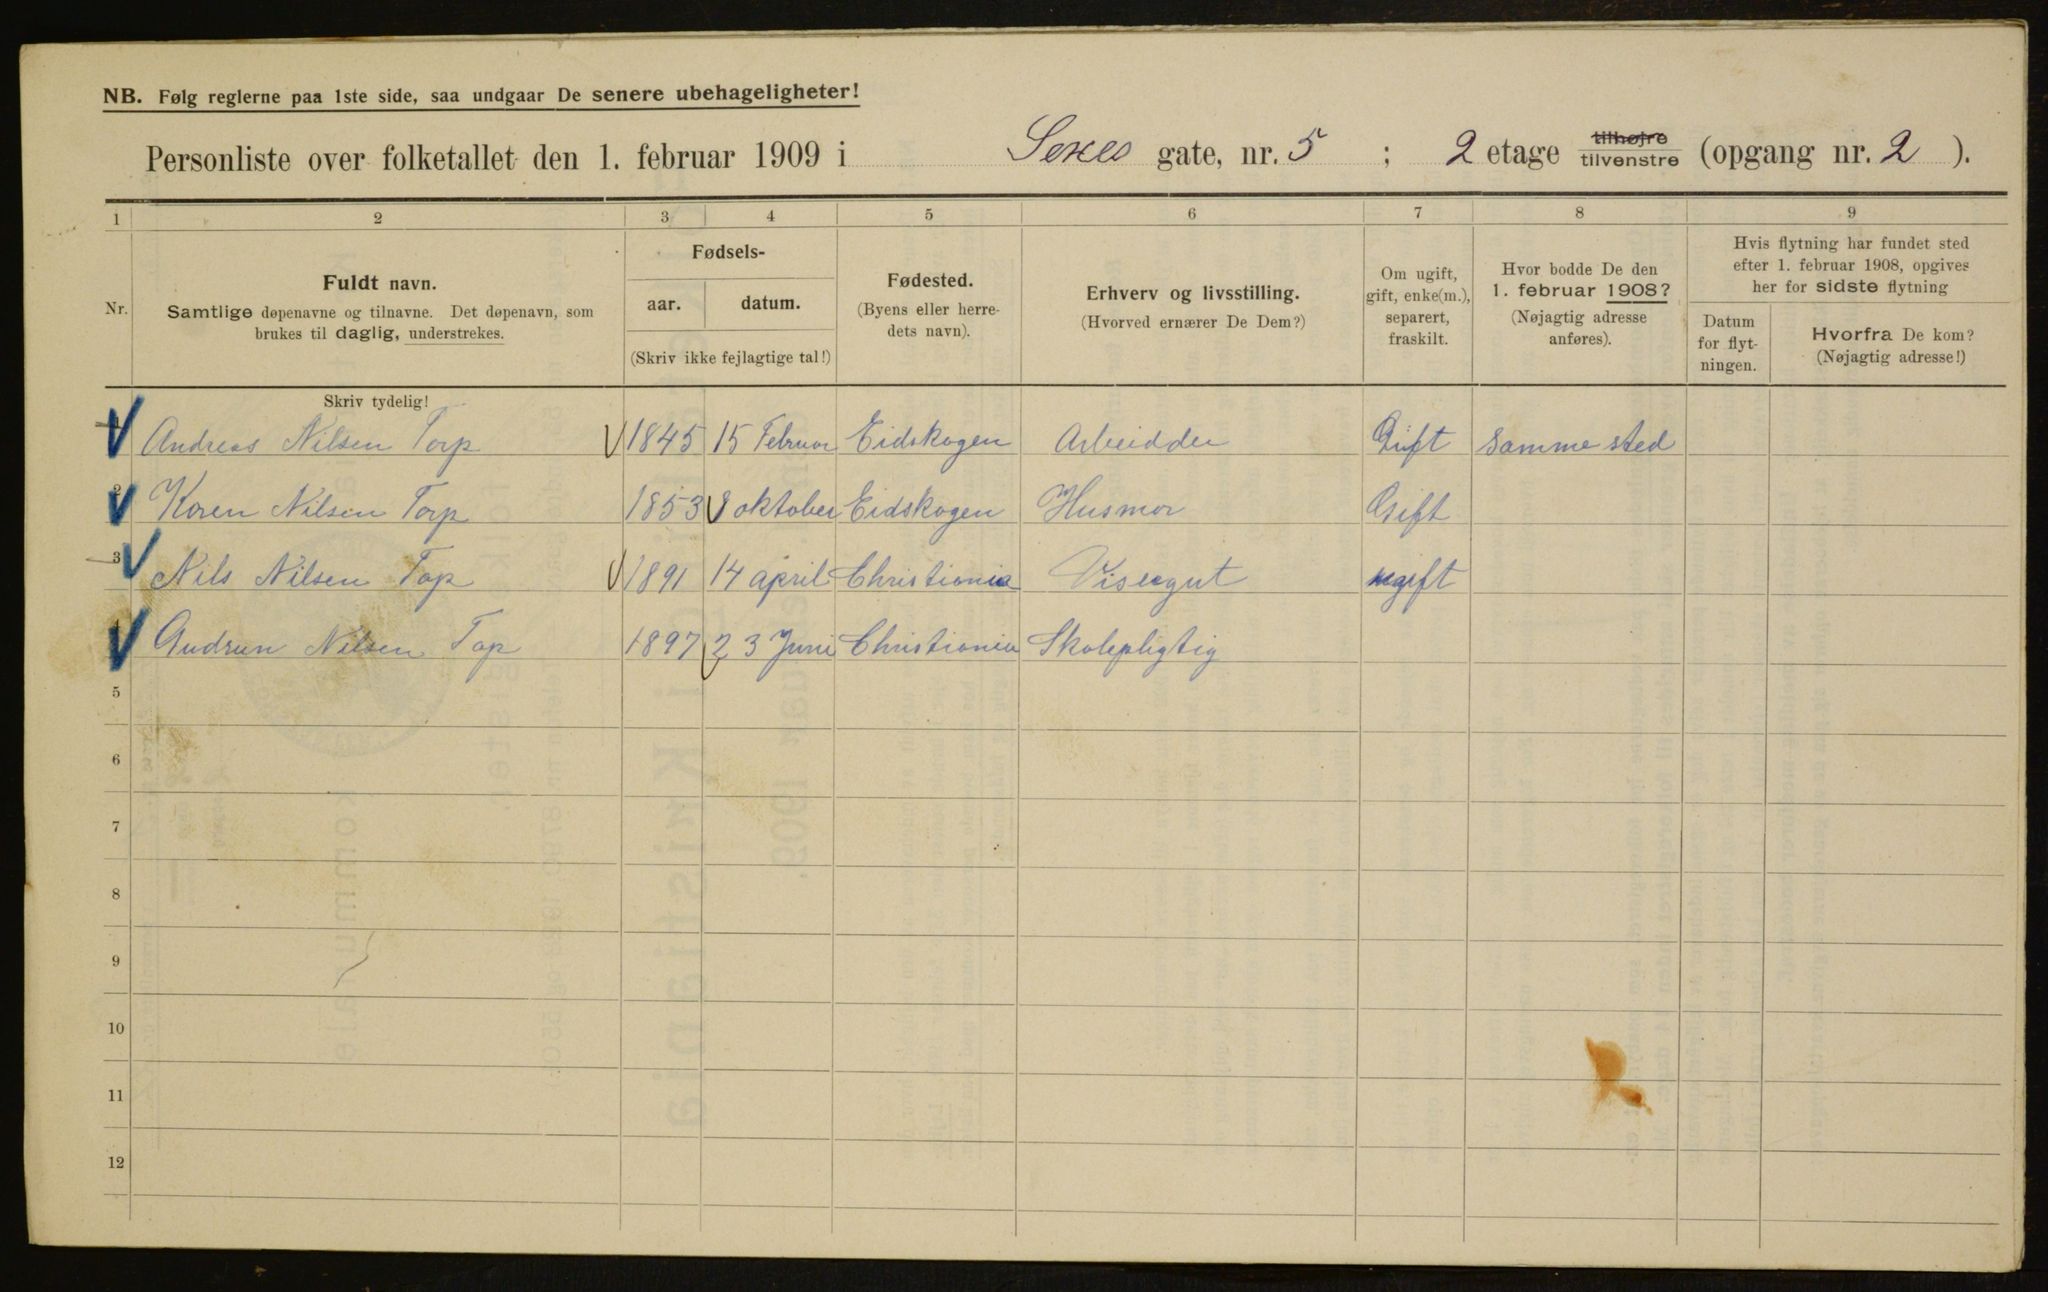 NB. Følg reglerne paa 1ste side, saa undgaar De senere ubehageligheter!
Personliste over folketallet den 1. februar 1909 i Sexes gate, nr. 5 ; 2 etage tilhøjre tilvenstre (opgang nr. 2 ).
1 2 3 4 5 6 7 8 9
Nr.
Fuldt navn.
Samtlige døpenavne og tilnavne. Det døpenavn, som
brukes til daglig, understrekes.
Fødsels-
aar. datum.
(Skriv ikke fejlagtige tal!)
Fødested.
(Byens eller herre-
dets navn).
Erhverv og livsstilling.
(Hvorved ernærer De Dem?)
Om ugift,
gift, enke(m.),
separert,
fraskilt.
Hvor bodde De den
1. februar 1908?
(Nøjagtig adresse
anføres).
Hvis flytning har fundet sted
efter 1. februar 1908, opgives
her for sidste flytning
Datum
for flyt-
ningen.
Hvorfra De kom?
(Nøjagtig adresse!)
Skriv tydelig!
Andreas Nilsen Torp 1845 15 Februar Eidskogen Arbeidder Gift samme sted
2 Karen Nilsen Torp 1853 8 oktober Eidskogen Husmor Gift
3 Nils Nilsen Top 1891 14 april Christiania Visergut ugift
4 Gudrun Nilsen Top 1897 23 Juni Christiania Skolepligtig
5
6
7
8
9
10
11
12